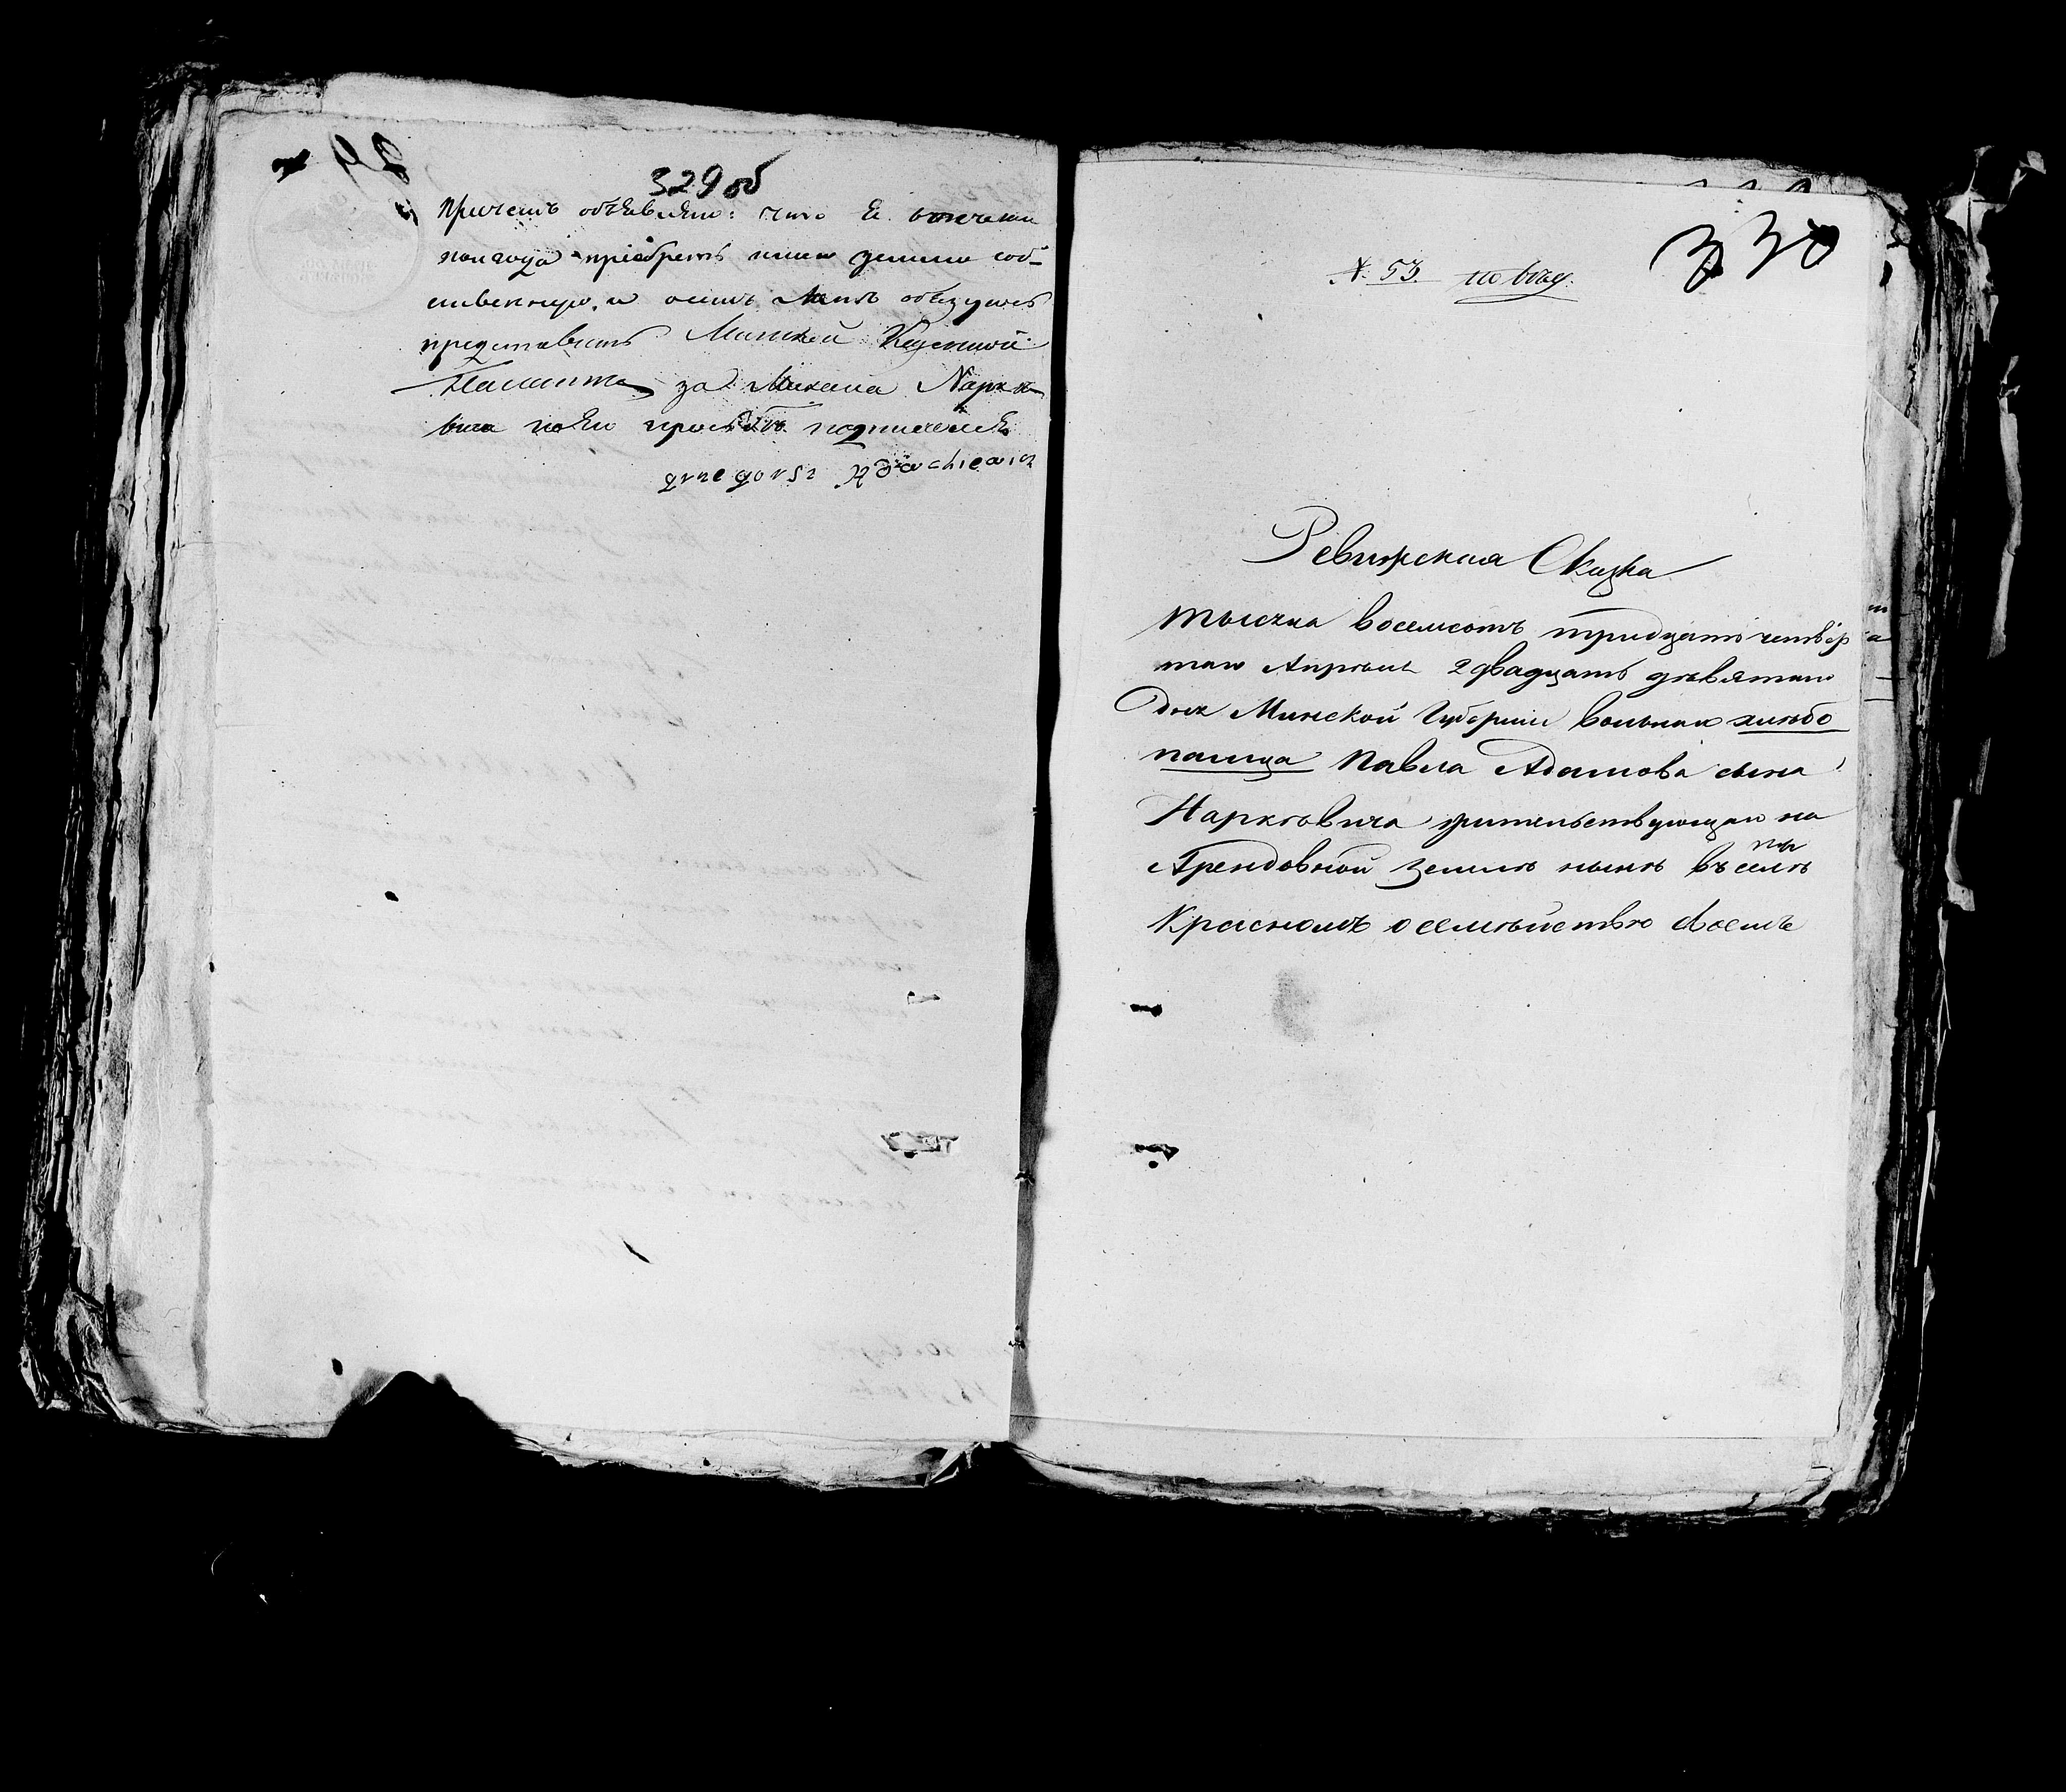 329 об
Причемъ объявляю: что я втечени
полгода пріобресть имею землю соб-
ственную, и онимъ Актъ обязуюсь
представить Минской Казенной
Палаты за Михала Нарке-
вича по его прозбѣ подписался
grzegorsz
330
№ 53. по вѣд.
Ревижская Сказка
тысяча восемсотъ тридцать четвёр
таго Апрѣля 2 двадцать дѣвятаго
дня Минской Губерніи вольнаго хлѣбо
пашца Павла Адамова сына
Наркѣвича жительствующаго на
Арендовной Землѣ нынѣ въ селѣ
Красномъ о семѣйствѣ своемъ